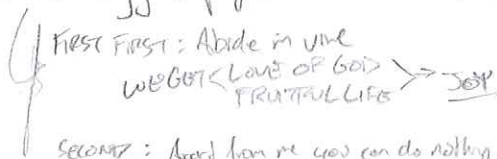 FIRST FIRST: Abide in vine
WE GET < LOVE OF GOD > => JOY
FRUITFUL LIFE
SECOND: Apart from me you can do nothing